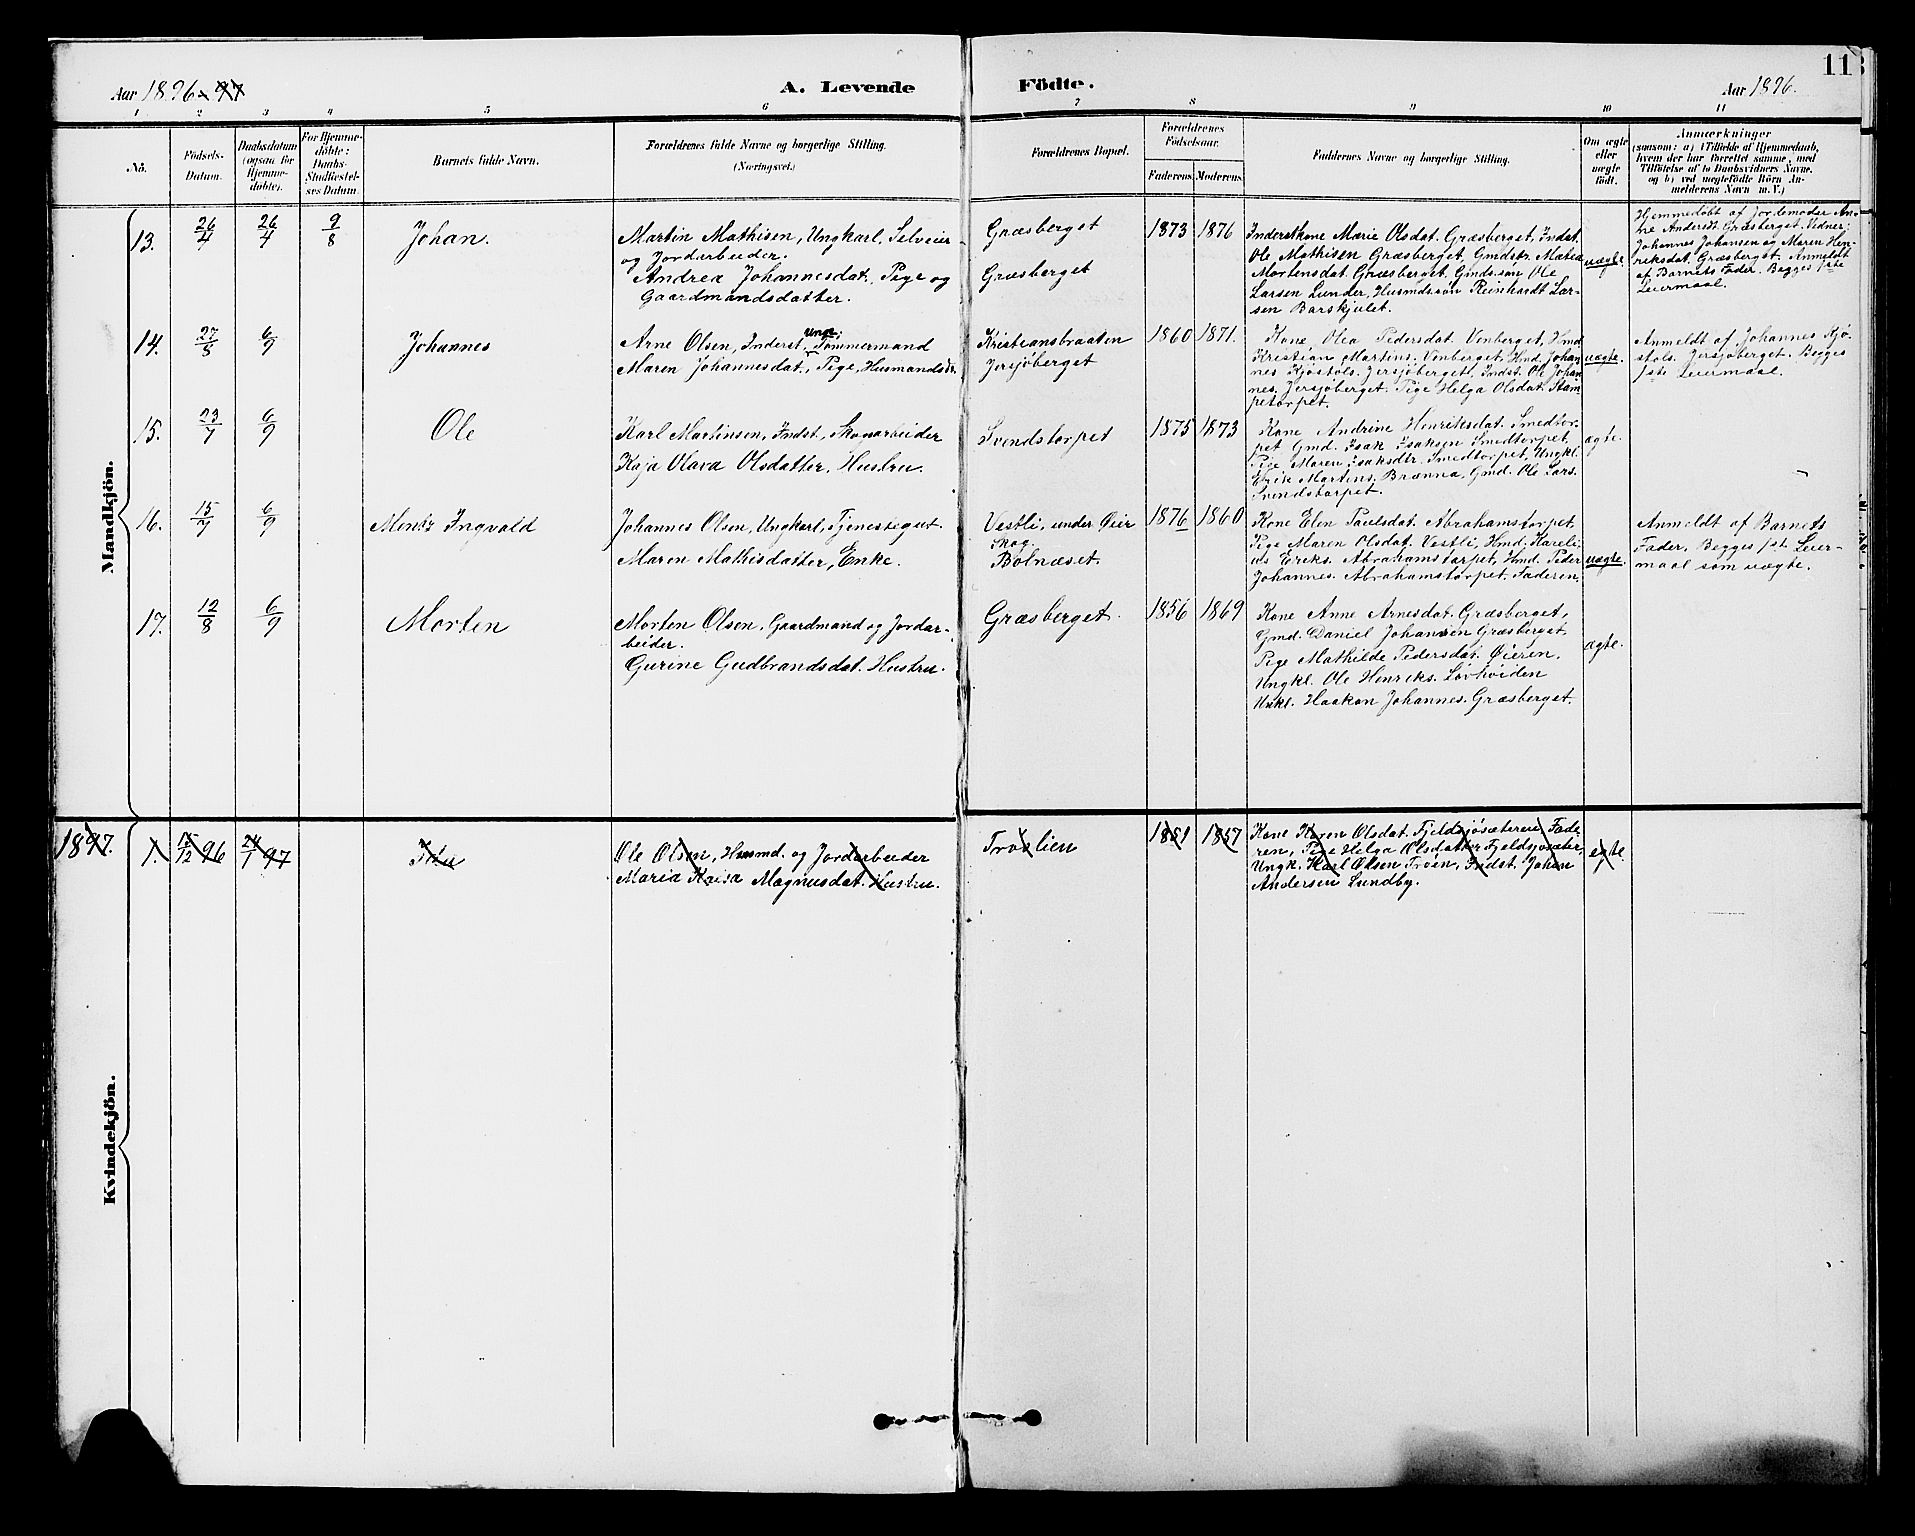 Aar 1896-97
A. Levende
Födte.
Aar 1896.
11
1 2 3 4 5 6 7 8 9 10 11
No.
Födsels-
Datum.
Daabsdatum
(ogsaa for
Hjemme-
döbte).
For Hjemme-
döbte:
Daabs-
Stadfæstel-
ses Datum.
Barnets fulde Navn.
Forældrenes fulde Navne og borgerlige Stilling.
(Næringsvei.)
Forældrenes Bopæl.
Forældrenes
Födselsaar.
Faderens. Moderens.
Faddernes Navne og borgerlige Stilling.
Om ægte
eller
uægte
födt.
Anmærkninger
(saasom: a) i Tilfælde af Hjemmedaab,
hvem der har forrettet samme, med
Tilföielse af to Daabsvidners Navne.
og b) ved uægtefödte Börn An-
melderens Navn m. V.)
Mandkjön.
13. 26/4 26/4 9/8 Johan.
Martin Mathisen, Ungkarl, Selveier
og Jordarbeider.
Andrea Johannesdat., Pige og
Gaardmandsdatter.
Græsberget
Græsberget
1873 1876
Inderstkone Marie Olsdat. Græsberget, Indst.
Ole Mathisen Græsberget, Gmdstr. Mathea
Mortensdat. Græsberget. Gmds.søn Ole
Larsen Lunder, Husmdssøn Reinhardt Lar-
sen Barskjulet.
uægte.
Hjemmedøbt af Jordemoder An-
ne Andersdt. Græsberget. Vidner:
Johannes Johansen og Maren Hen-
riksdat. Græsberget. Anmeldt
af Barnets Fader. Begges 1ste
Leiermaal.
14. 27/8 6/9 Johannes
Arne Olsen, Inderst, Ungk. Tømmermand
Maren Johannesdat., Pige, Husmandsdr.
Kristiansbraaten
Jersjøberget
1860 1871.
Kone Olea Pedersdat. Venberget, Hmd
Kristian Martins. Venberget, Hmd. Johan-
nes Kjøstols. Jersjøberget, Indst. Ole Johan-
nes. Jersjøberget. Pige Helga Olsdat. Stam-
petorpet.
uægte.
Anmeldt af Johannes Kjø-
stols. Jersjøberget. Begges
1ste Leiermaal.
15. 23/7 6/9 Ole
Karl Martinsen, Indst., Skovarbeider
Kaja Olava Olsdatter, Hustru.
Svendstorpet
1875 1873
Kone Andrine Henriksdat. Smedtor-
pet Gmd. Isak Isaksen Smedtorpet,
Pige Maren Isaksdtr. Smedtorpet, Ungkl.
Erik Martins. Brænna, Gmd. Ole Lars.
Svendstorpet.
ægte.
16. 15/7 6/9 Mentz Ingvald
Johannes Olsen, Ungkarl, Tjenestegut.
Maren Mathisdatter, Enke.
Vestli, under Øier
Skog.
Bølnæset.
1876 1860
Kone Elen Paulsdat. Abrahamstorpet,
Pige Maren Olsdat. Vestli, Hmd. Kareli-
us Eriks. Abrahamstorpet, Hmd. Peder
Johannes. Abrahamstorpet. Faderen.
uægte.
Anmeldt af Barnets
Fader. Begges 1st Leier-
maal som uægte.
17. 12/8 6/9 Morten
Morten Olsen, Gaardmand og Jordar-
beider.
Gurine Gudbrandsdat. Hustru.
Græsberget.
1856 1869
Kone Anne Arnesdat. Græsberget,
Gmd. Daniel Johansen Græsberget
Pige Mathilde Pedersdat. Øieren,
Ungkl. Ole Henriks. Løvhøiden
Unkl. Haakon Johannes. Græsberget.
ægte.
Kvindekjön.
1897. 1. 15/12 96 24/1 97
Ole Olsen, Husmd. og Jordarbeider
Maria Kaisa Magnusdat. Hustru.
Troslien
1851 1857
Kone Karen Olsdat. Fjeldsjøsæteren Fade-
ren, Pige Helga Olsdatter Fjeldsjøsæter,
Ungk. Karl Olsen Troen, Indst. Johan
Andersen Lundby.
egte